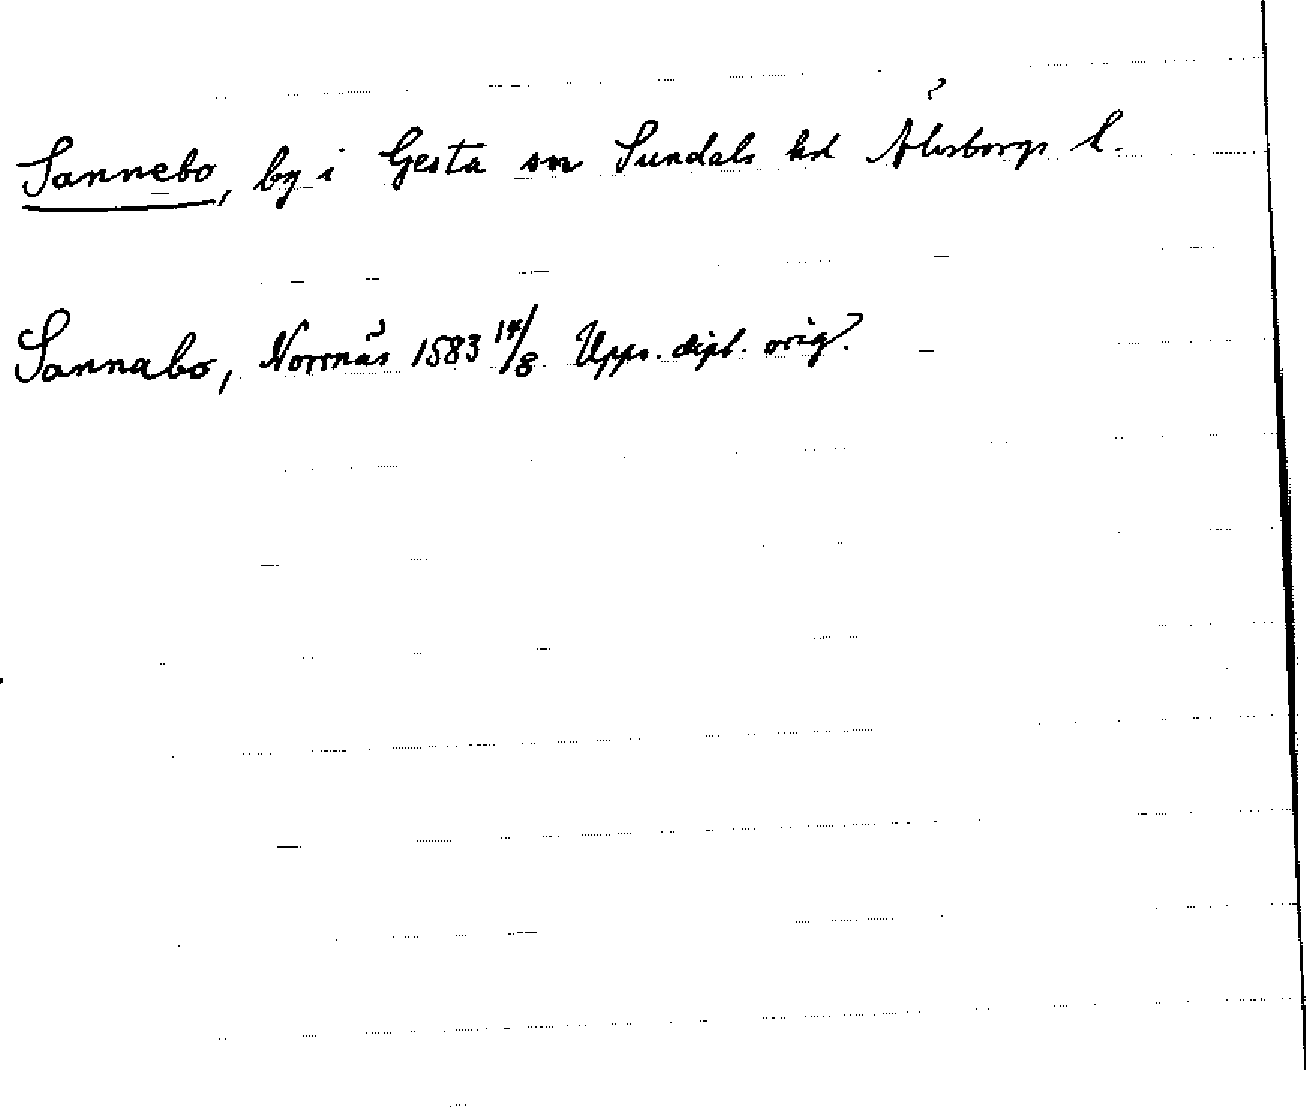 Sannebo, by i Gesta sn Sundals hd Älvsborgs l.
Sannabo, Norrnäs 1583 14/8. Upps. dipl. orig.